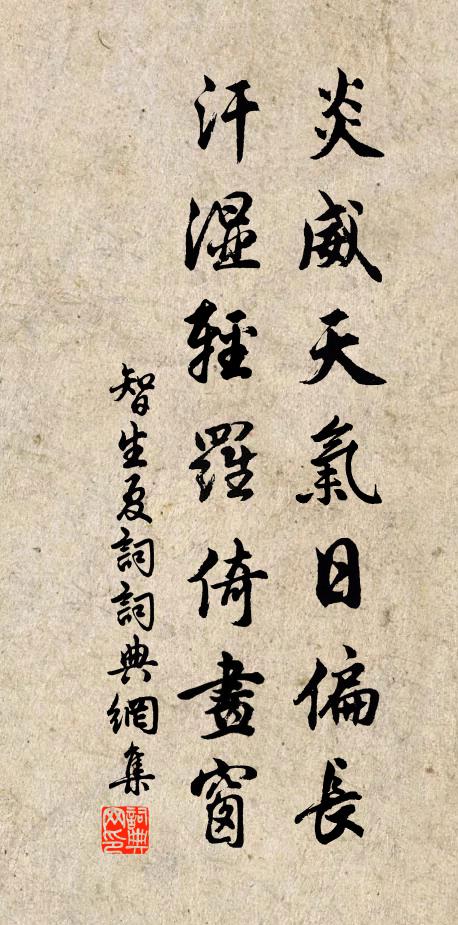 炎威天氣日偏長
汗湿輕羅倚畫窗
智生夏詞詞典網集
詞典网印